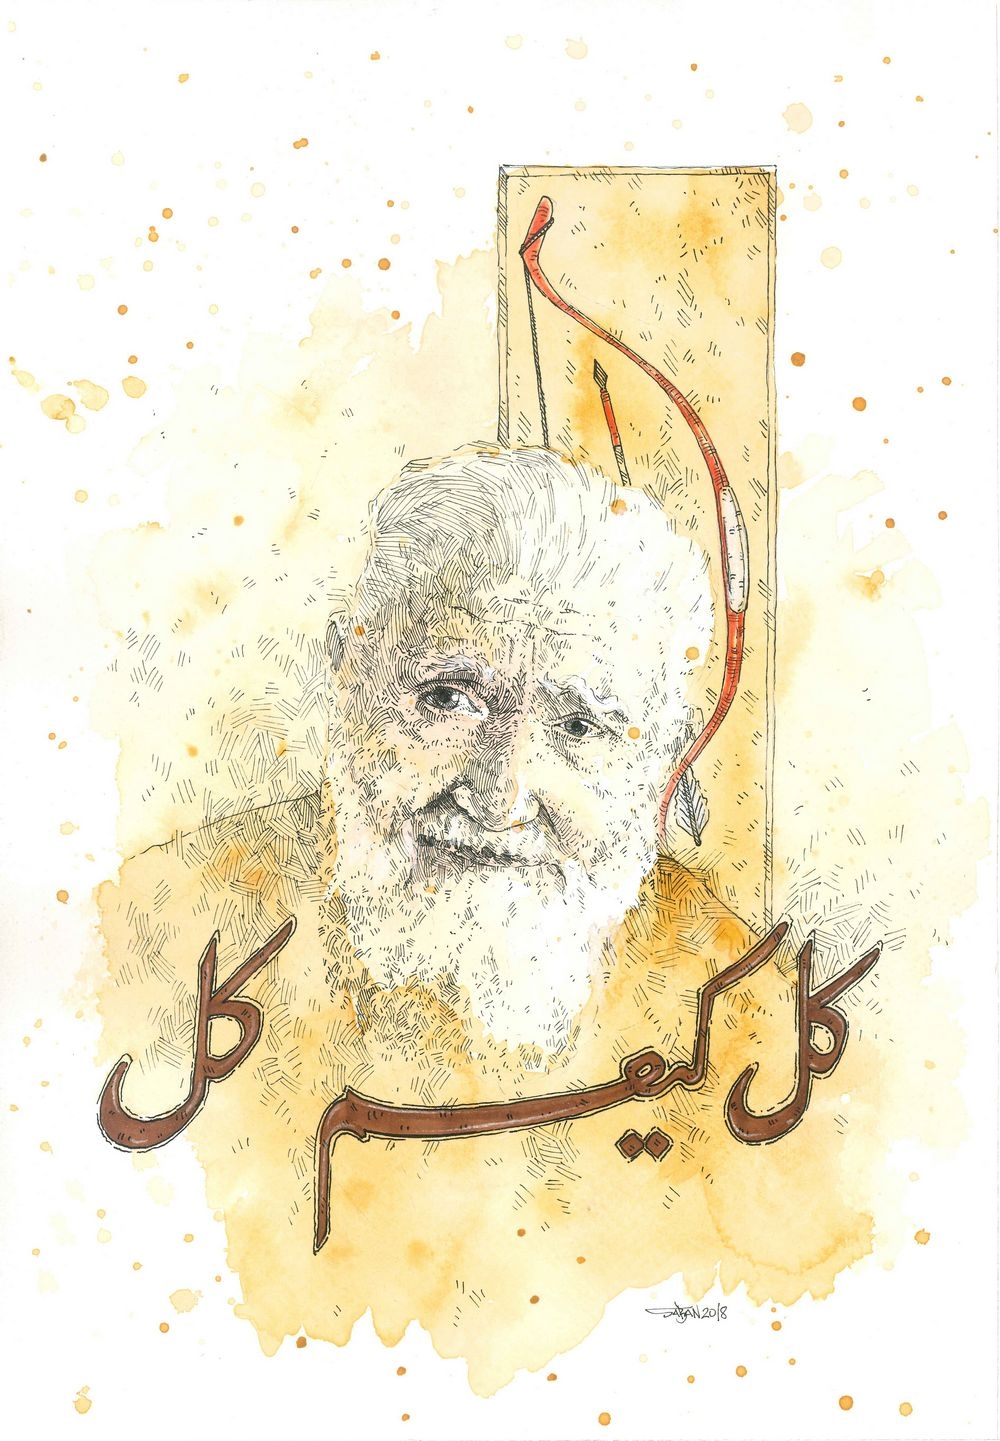 كل كيفم كل
SABAN 2018